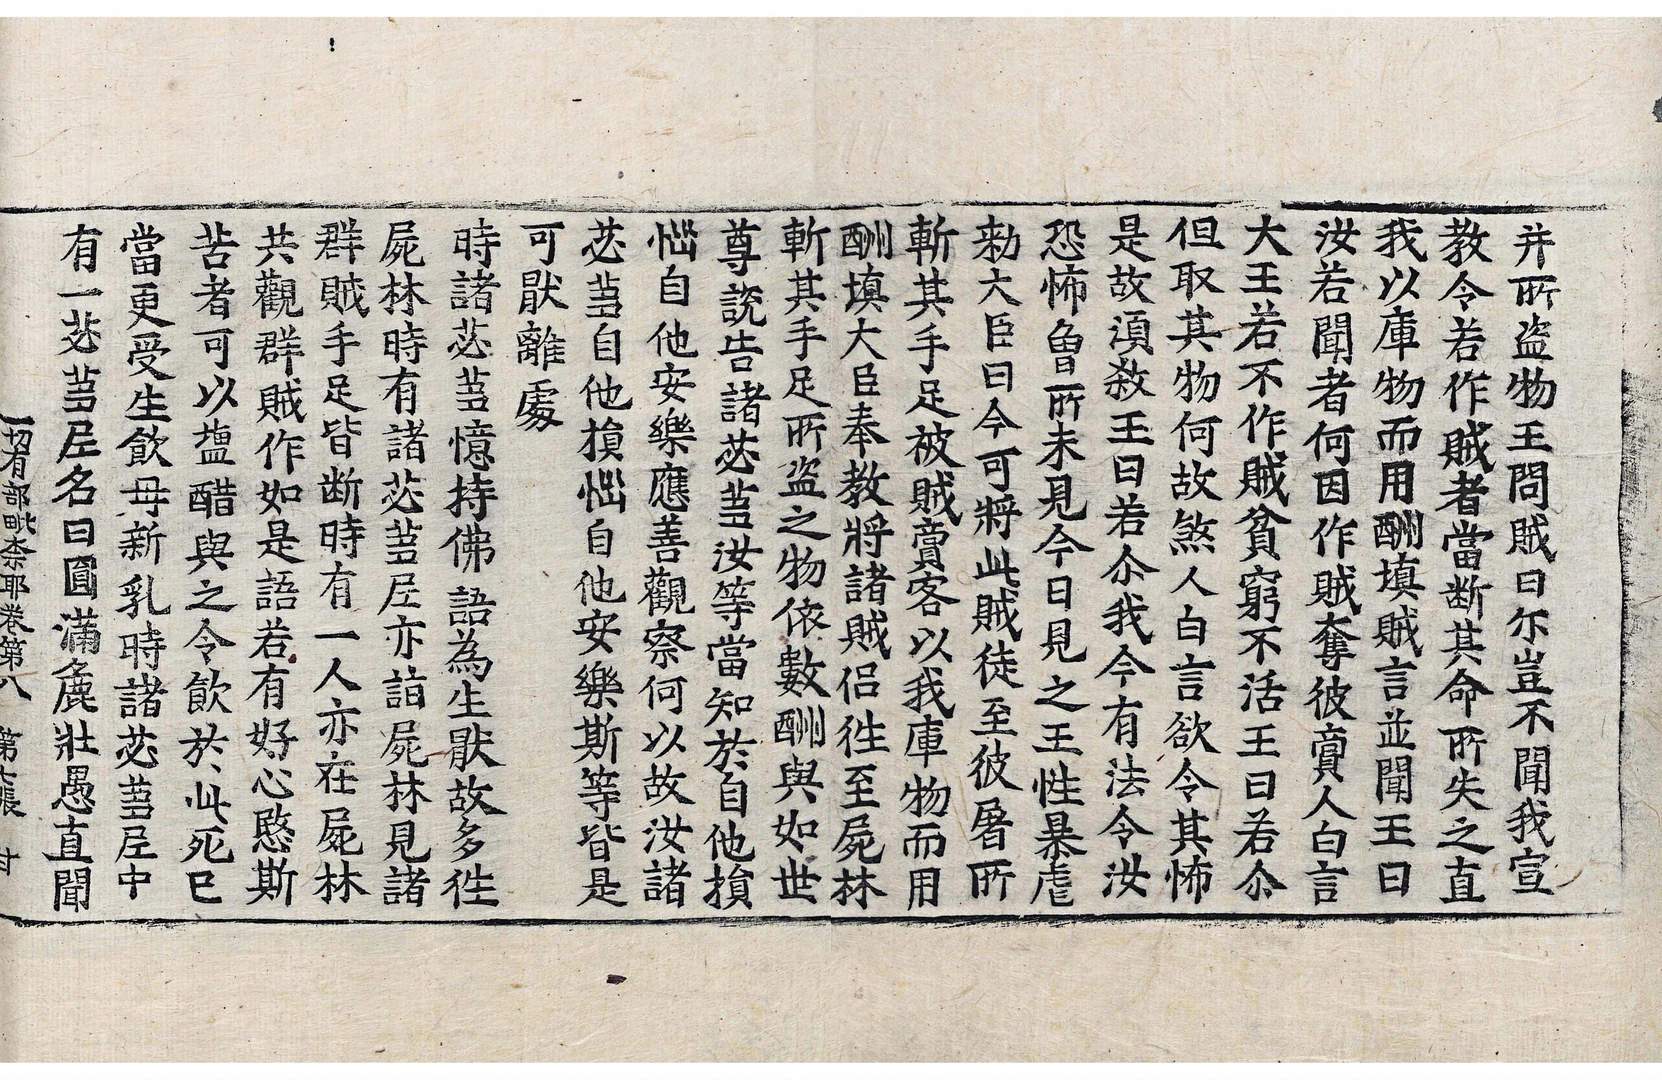 并所盗物王問賊曰尒豈不聞我宣
教令若作賊者當断其命所失之直
我以庫物而用酬填賊言並聞王曰
汝若聞者何因作賊奪彼賣人白言
大王若不作賊貧窮不活王曰若尒
但取其物何故煞人白言欲令其怖
是故湏敘王曰若尒我今有法令汝
恐怖曾所未見今日見之王性暴虐
勑大臣曰今可將此賊徒至彼屠所
斬其手足被賊賣客以我庫物而用
酬填大臣奉教將諸賊侣徃至屍林
斬其手足所盗之物依數酬與如世
尊說告諸苾蒭汝等當知於自他損
惱自他安樂應善觀察何以故汝諸
苾蒭自他損惱自他安樂斯等皆是
可猒離處
時諸苾蒭憶持佛語為生猒故多徃
屍林時有諸苾蒭尼亦詣屍林見諸
群賊手足皆断時有一人亦在屍林
共觀群賊作如是語若有好心愍斯
苦者可以塩醋與之令飲於此死已
當更受生飲母新乳時諸苾蒭尼中
有一苾蒭尼名曰圓滿麁壯愚直聞
一切有部毗奈耶卷第八 第七張 甘